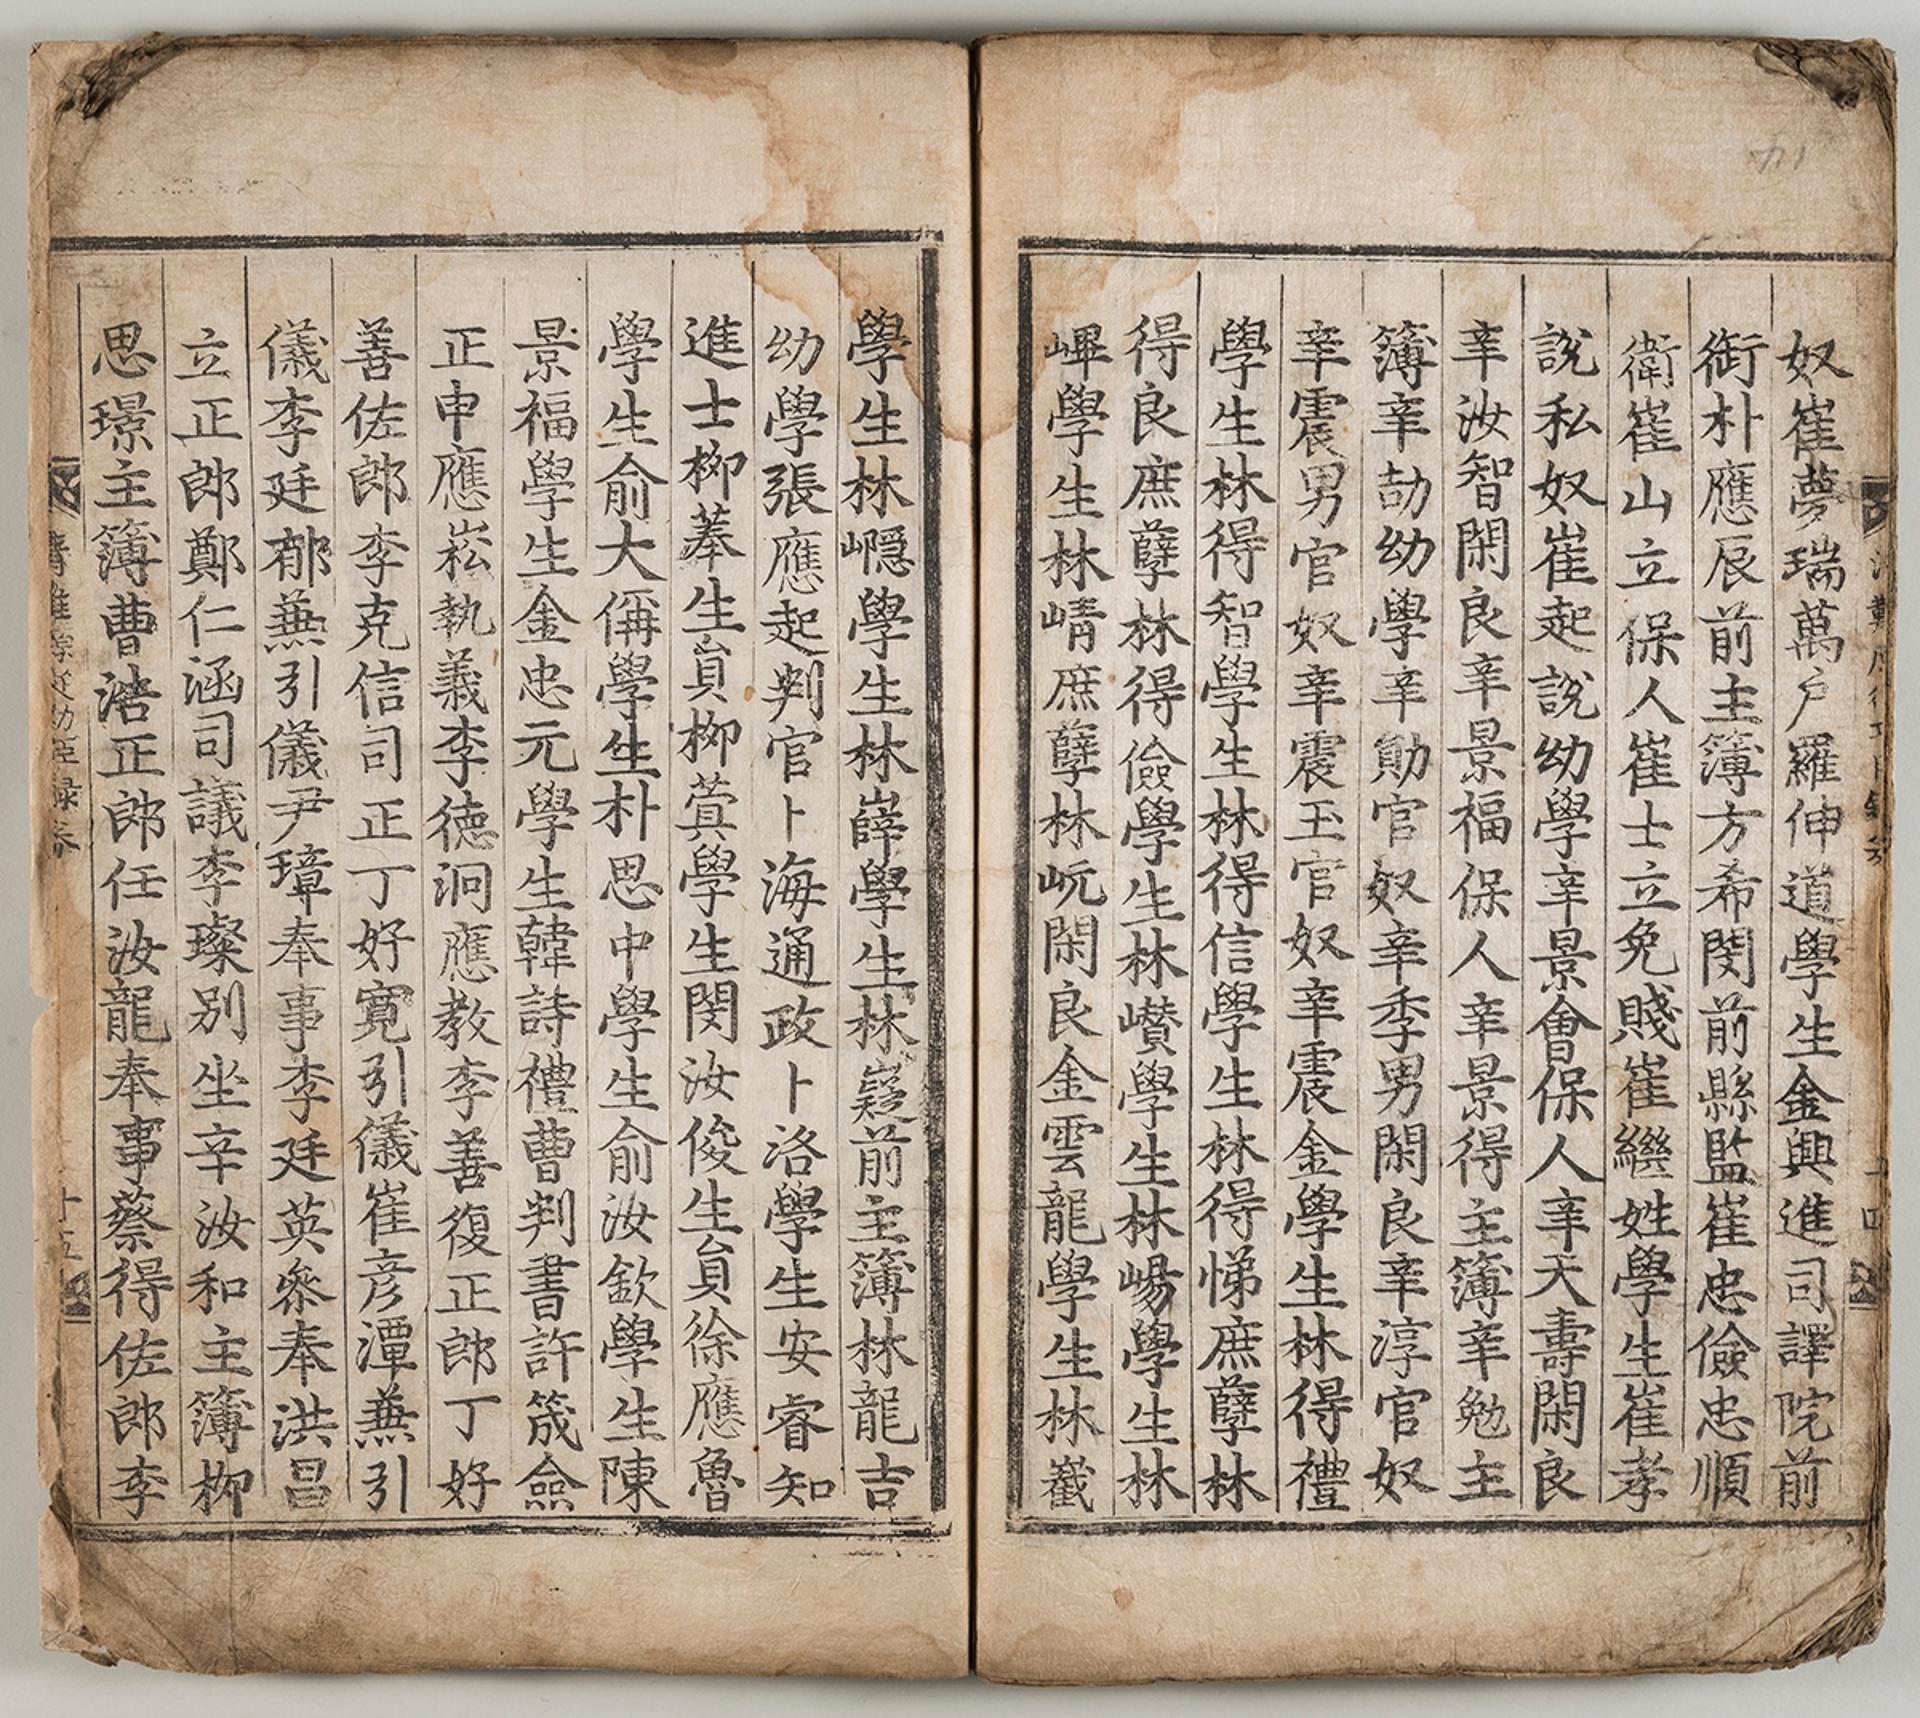 奴崔夢瑞萬戶羅伸道學生金興進司譯院前
銜朴應辰前主簿方希閔前縣監崔忠儉忠順
衛崔山立保人崔士立免賤崔繼姓學生崔孝
說私奴崔起說幼學辛景會保人辛天壽閑良
辛汝智閑良辛景福保人辛景得主簿辛勉主
簿辛劼幼學辛勛官奴辛季男閑良辛淳官奴
辛震男官奴辛震玉官奴辛震金學生林得禮
學生林得智學生林得信學生林得悌庶孽林
得良庶孽林得儉學生林巑學生林崵學生林
㟸學生林崝庶孽林岏閑良金雲龍學生林巀
學生林㠏學生林薛學生林嶷前主簿林龍吉
幼學張應起判官卜海通政卜洛學生安睿知
進士柳菶生員柳蓂學生閔汝俊生員徐應魯
學生俞大偁學生朴思中學生俞汝欽學生陳
景福學生金忠元學生韓詩禮曹判書許筬僉
正申應崧執義李德泂應教李善復正郎丁好
善佐郎李克信司正丁好寬引儀崔彥潭兼引
儀李廷郁兼引儀尹璋奉事李廷英參奉洪昌
立正郎鄭仁涵司議李璨別坐辛汝和主簿柳
思璟主簿曹浩正郎任汝龍奉事蔡得佐郎李
十五